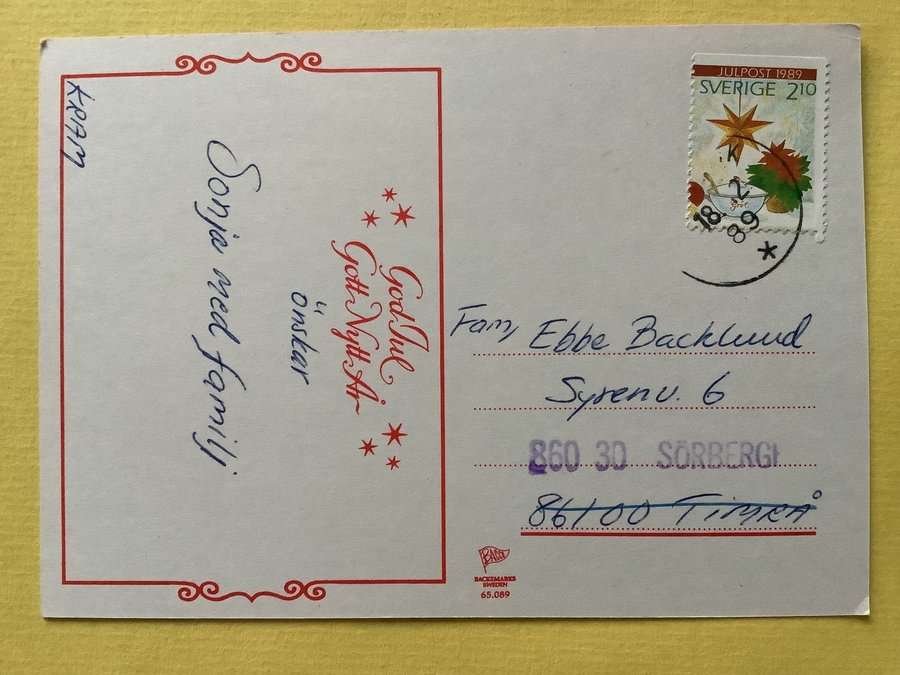 KRAM
God Jul
Gott Nytt År
önskar
Sonja med familj
JULPOST 1989
SVERIGE 2.10
Gröt
18 2
89
Fam, Ebbe Backlund
Syrenv. 6
860 30 SÖRBERGE
86100 TIMRÅ
BACKEMARKS
SWEDEN
65.089